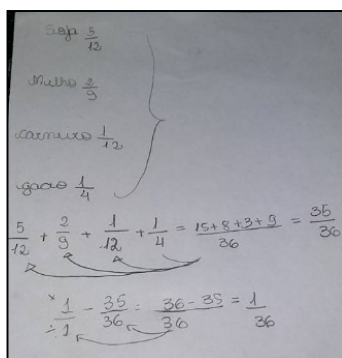 Soja 5/12
Milho 2/9
carneiro 1/12
gado 1/4
5/12 + 2/9 + 1/12 + 1/4 = 15+8+3+9/36 = 35/36
× 1/1 - 35/36 = 36-35/36 = 1/36
÷